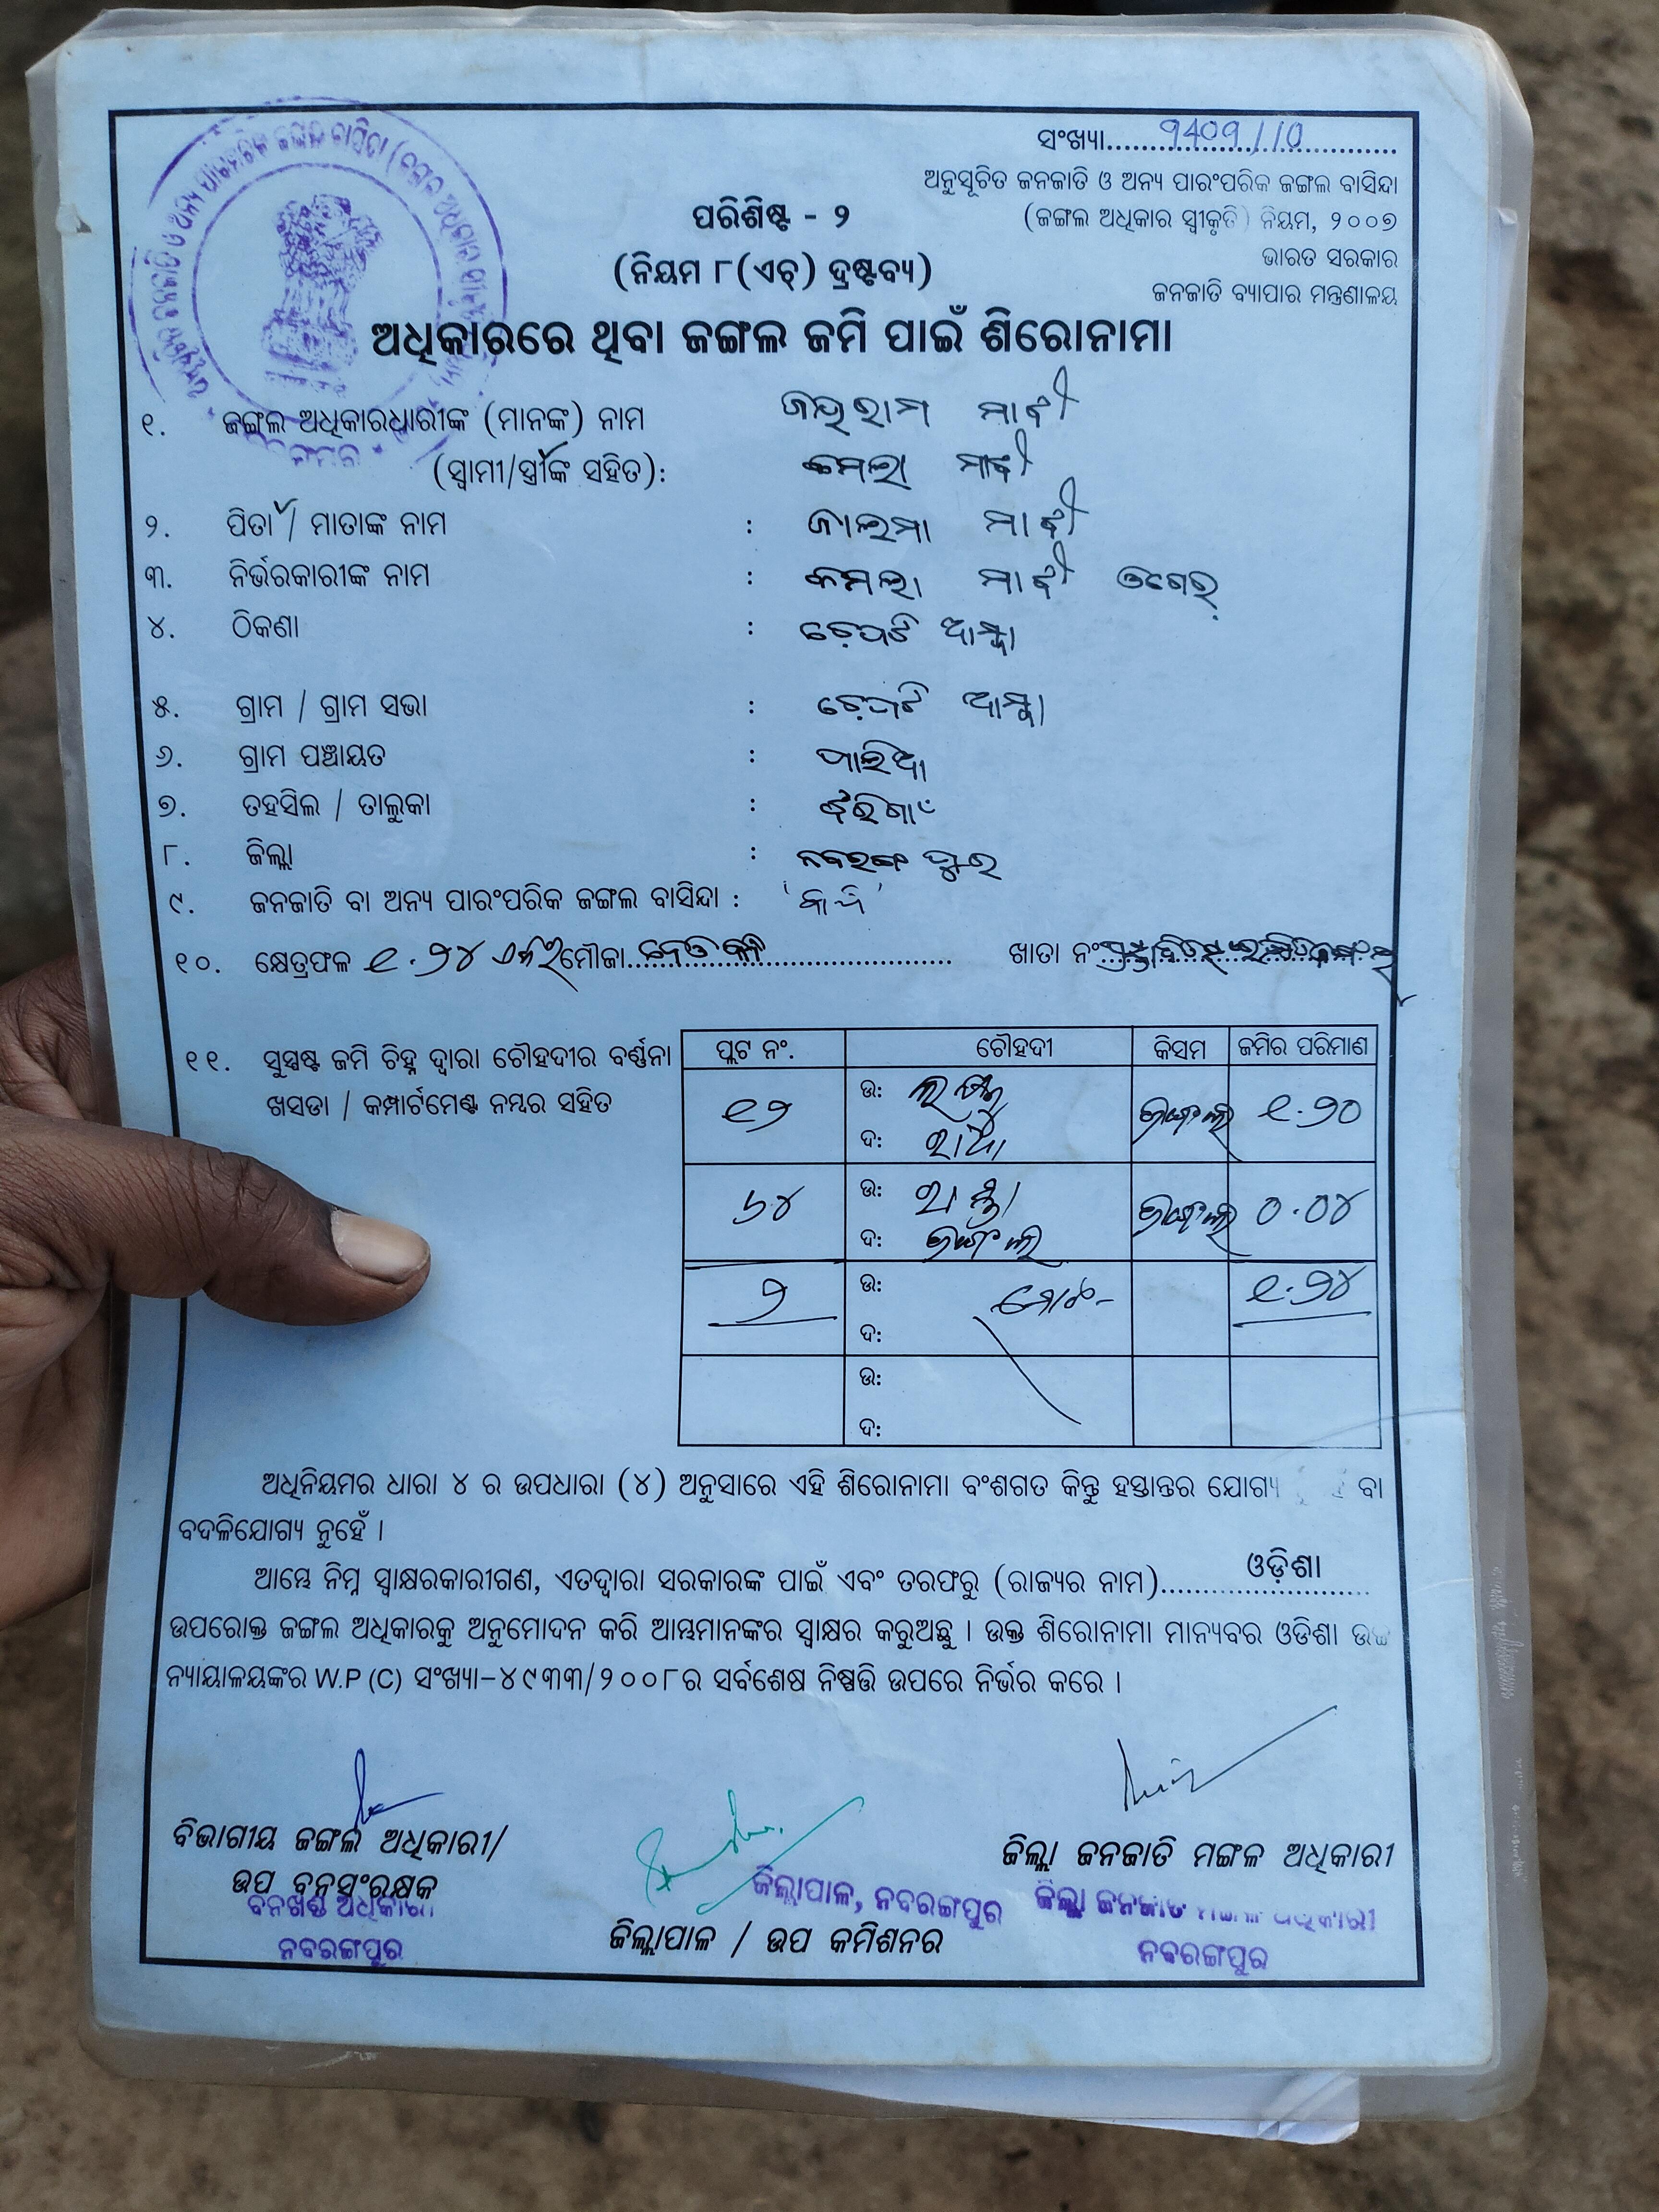 ସଂଖ୍ୟା
ଅନୁସୂଚିତ ଜନଜାତି ଓ ଅନ୍ୟ ପାରଂପରିକ ଜଙ୍ଗଲ ବାସିନ୍ଦା
(ଜଙ୍ଗଲ ଅଧିକାର ସ୍ୱୀକୃତି) ନିୟମ, ୨୦୦୭
ଭାରତ ସରକାର
ଜନଜାତି ବ୍ୟାପାର ମନ୍ତ୍ରଣାଳୟ
ପରିଶିଷ୍ଟ - ୨
(ନିୟମ ୮(ଏଚ୍) ଦ୍ରଷ୍ଟବ୍ୟ)
ଅଧିକାରରେ ଥିବା ଜଙ୍ଗଲ ଜମି ପାଇଁ ଶିରୋନାମା
୧. ଜଙ୍ଗଲ ଅଧିକାରଧାରୀଙ୍କ (ମାନଙ୍କ) ନାମ ଜୟରାମ ମାଝୀ
(ସ୍ୱାମୀ/ସ୍ତ୍ରୀଙ୍କ ସହିତ): କମଲା ମାଝୀ
୨. ପିତା / ମାତାଙ୍କ ନାମ : ଜାଲମା ମାଝୀ
୩. ନିର୍ଭରକାରୀଙ୍କ ନାମ : କମଲା ମାଝୀ ଓଗେର୍
୪. ଠିକଣା : ଚେପଟି ଆମ୍ବା
୫. ଗ୍ରାମ / ଗ୍ରାମ ସଭା : ଚେପଟି ଆମ୍ବା
୬. ଗ୍ରାମ ପଞ୍ଚାୟତ : ପାଲିଆ
୭. ତହସିଲ / ତାଲୁକା : ଝରିଗାଁ
୮. ଜିଲ୍ଲା : ନବରଙ୍ଗପୁର
୯. ଜନଜାତି ବା ଅନ୍ୟ ପାରଂପରିକ ଜଙ୍ଗଲ ବାସିନ୍ଦା :
୧୦. କ୍ଷେତ୍ରଫଳ ୧.୨୪ ଏକର ମୌଜା ଖାତା ନଂ
୧୧. ସୁସ୍ପଷ୍ଟ ଜମି ଚିହ୍ନ ଦ୍ୱାରା ଚୌହଦୀର ବର୍ଣ୍ଣନା
ଖସଡା / କମ୍ପାର୍ଟମେଣ୍ଟ ନମ୍ବର ସହିତ
ପ୍ଲଟ ନଂ. ଚୌହଦୀ କିସମ ଜମିର ପରିମାଣ
୧୨ ଉ: ଜଙ୍ଗଲ ୧.୨୦
ଦ:
୬୪ ଉ: ରାସ୍ତା ଜଙ୍ଗଲ ୦.୦୪
ଦ: ଜଙ୍ଗଲ
୨ ଉ: ମୋଟ- ୧.୨୪
ଦ:
ଉ:
ଦ:
ଅଧିନିୟମର ଧାରା ୪ ର ଉପଧାରା (୪) ଅନୁସାରେ ଏହି ଶିରୋନାମା ବଂଶଗତ କିନ୍ତୁ ହସ୍ତାନ୍ତର ଯୋଗ୍ୟ ବା
ବଦଳିଯୋଗ୍ୟ ନୁହେଁ ।
ଆମ୍ଭେ ନିମ୍ନ ସ୍ୱାକ୍ଷରକାରୀଗଣ, ଏତଦ୍ୱାରା ସରକାରଙ୍କ ପାଇଁ ଏବଂ ତରଫରୁ (ରାଜ୍ୟର ନାମ) ଓଡ଼ିଶା
ଉପରୋକ୍ତ ଜଙ୍ଗଲ ଅଧିକାରକୁ ଅନୁମୋଦନ କରି ଆମ୍ଭମାନଙ୍କର ସ୍ୱାକ୍ଷର କରୁଅଛୁ । ଉକ୍ତ ଶିରୋନାମା ମାନ୍ୟବର ଓଡିଶା ଉଚ୍ଚ
ନ୍ୟାୟାଳୟଙ୍କର W.P (C) ସଂଖ୍ୟା-୪୯୩୩/୨୦୦୮ର ସର୍ବଶେଷ ନିଷ୍ପତ୍ତି ଉପରେ ନିର୍ଭର କରେ ।
ବିଭାଗୀୟ ଜଙ୍ଗଲ ଅଧିକାରୀ/
ଉପ ବନସଂରକ୍ଷକ
ବନଖଣ୍ଡ ଅଧିକାରୀ
ନବରଙ୍ଗପୁର
ଜିଲ୍ଲାପାଳ, ନବରଙ୍ଗପୁର
ଜିଲ୍ଲାପାଳ / ଉପ କମିଶନର
ଜିଲ୍ଲା ଜନଜାତି ମଙ୍ଗଳ ଅଧିକାରୀ
ଜିଲ୍ଲା ଜନଜାତି ମଙ୍ଗଳ ଅଧିକାରୀ
ନବରଙ୍ଗପୁର